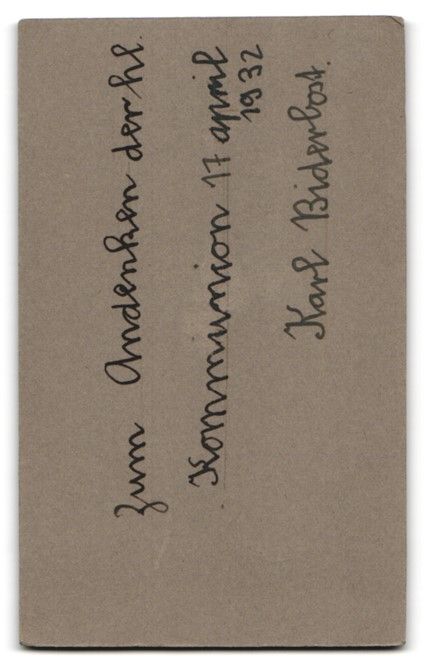 zum Andenken der hl.
Kommunion 17 april
1932
Karl Biderbost.